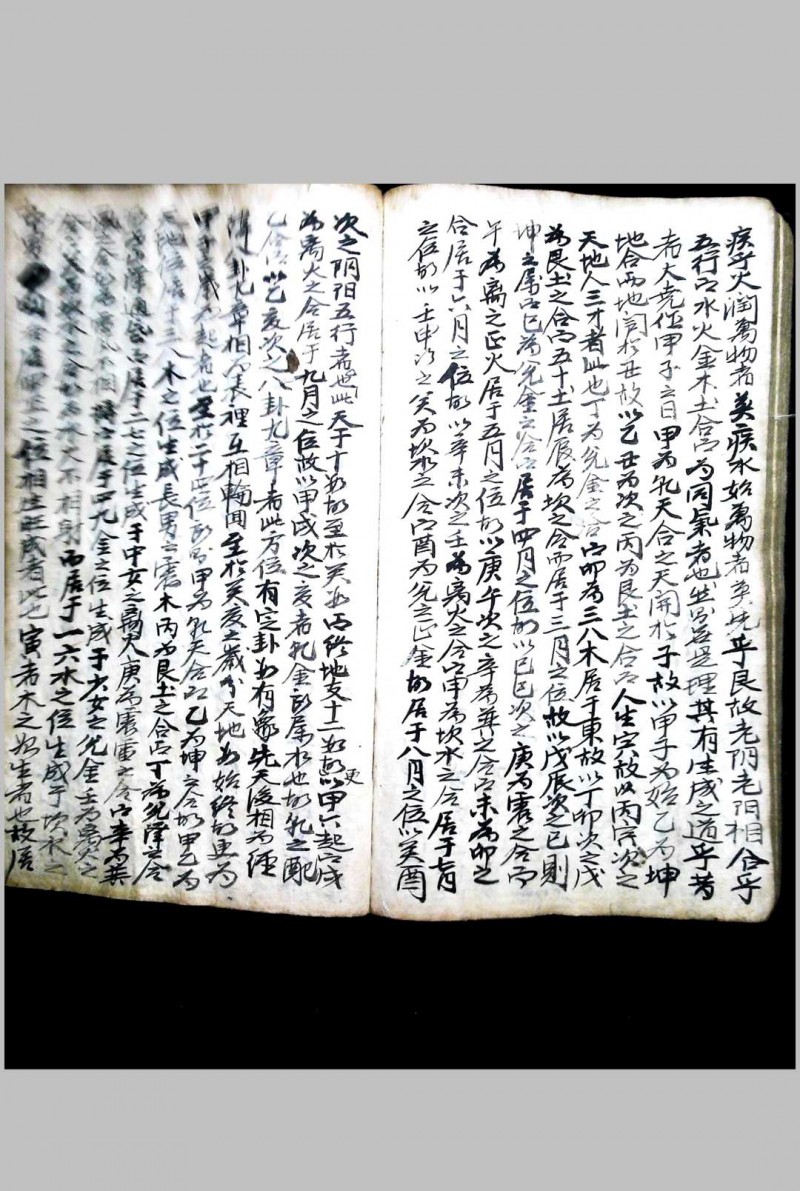 疾乎火潤萬物者莫疾水始萬物者莫先乎艮故老阴老阳相合乎
五行水火金木土合而為同氣者也是理其有生成之道乎昔
者大堯位甲子之日甲為乾天合之天開於子故以甲子為始乙為坤
地合而地闢於丑故以乙丑為次之丙為艮土之合而人生寅故以丙寅次之
天地人三才者此也丁為兌金之合而卯為三八木居于東故以丁卯次之戊
為艮土之合而五十土居辰為坎之合而居于三月之位故以戊辰次之已則
坤之属而巳為兌金之合而居于四月之位故以已巳次之庚為震之合而
午為離之正火居于五月之位故以庚午次之辛為巽之合而未為卯之
合居于六月之位故以辛未次之壬為离火之合而申為坎水之合居于七月
之位故以壬申次之癸為坎水之合而酉為兌之正金故居于八月之位以癸酉
次之阴阳五行者也此天干十为故至於癸为而终地支十二为故更以甲六起而戌
為离火之合居于九月之位故以甲戌次之亥者乾金属水也故乾之配
乙合而以乙亥次之八卦九章者此方位有定卦为有象先天後相為經
卦九章相為表裡互相輪回至於癸亥之歲分天地为始終故更為
甲子之歲為起者也至於二十位甲為乾天合而乙為坤之合故甲乙為
天地位居于三八木之位生成長男之震木丙為艮土之合而丁為兌澤之合
山澤通氣而居于二七之位生成于中女之离火庚為震雷之合而辛為巽
風之合相居于四九金之位生成于少女之兌金壬為离火之
合水火不相射而居于一六水之位生成于坎水之
之位相生旺成者此也寅者木之为生者也故居